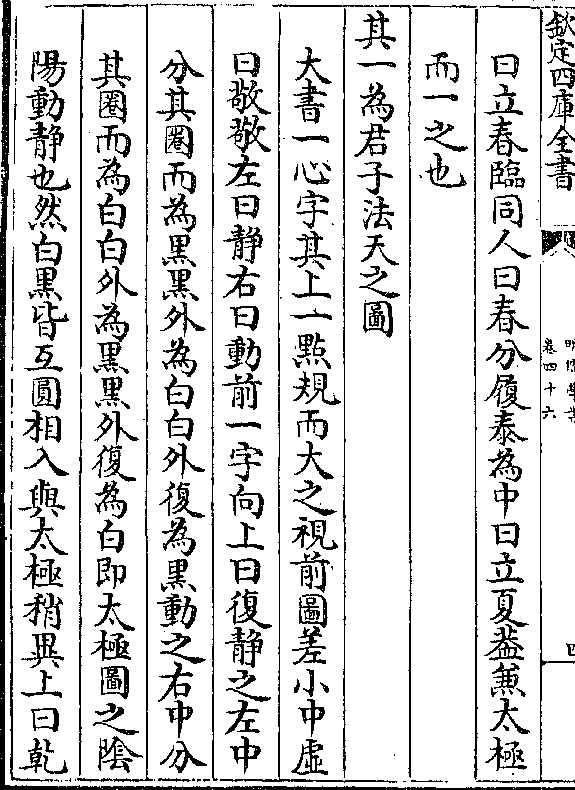 欽定四庫全書
明儒學案
卷四十六
四
曰立春臨同人曰春分履泰為中曰立夏葢兼太極
而一之也
其一為君子法天之圖
大書一心字其上一㸃規而大之視前圖差小中虛
曰敬敬左曰静右曰動前一字向上曰復静之左中
分其圈而為黒黒外為白白外復為黒動之右中分
其圈而為白白外為黒黒外復為白即太極圖之陰
陽動静也然白黒皆互圓相入與太極稍異上曰乾